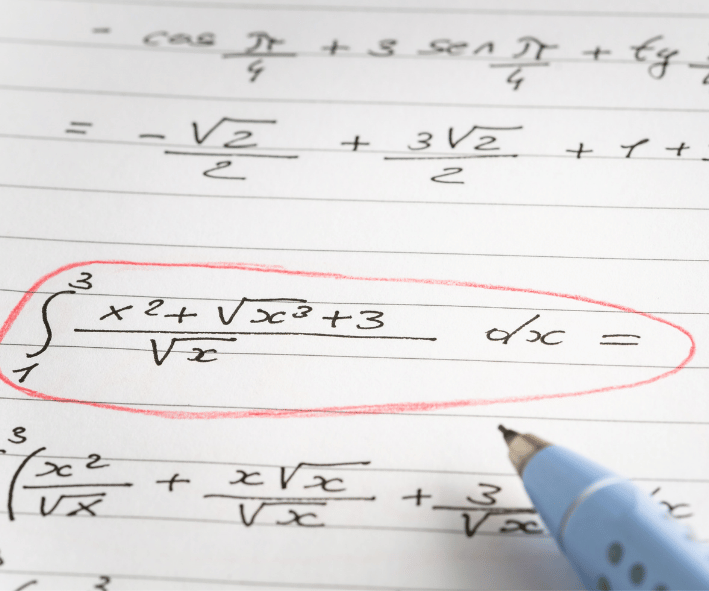 - cos π/4 + 3 sen π/4 + tg
= - √2/2 + 3√2/2 + 1 +
∫₁³ (x² + √x³ + 3)/√x dx =
³(x²/√x + x√x/√x + 3/√x x